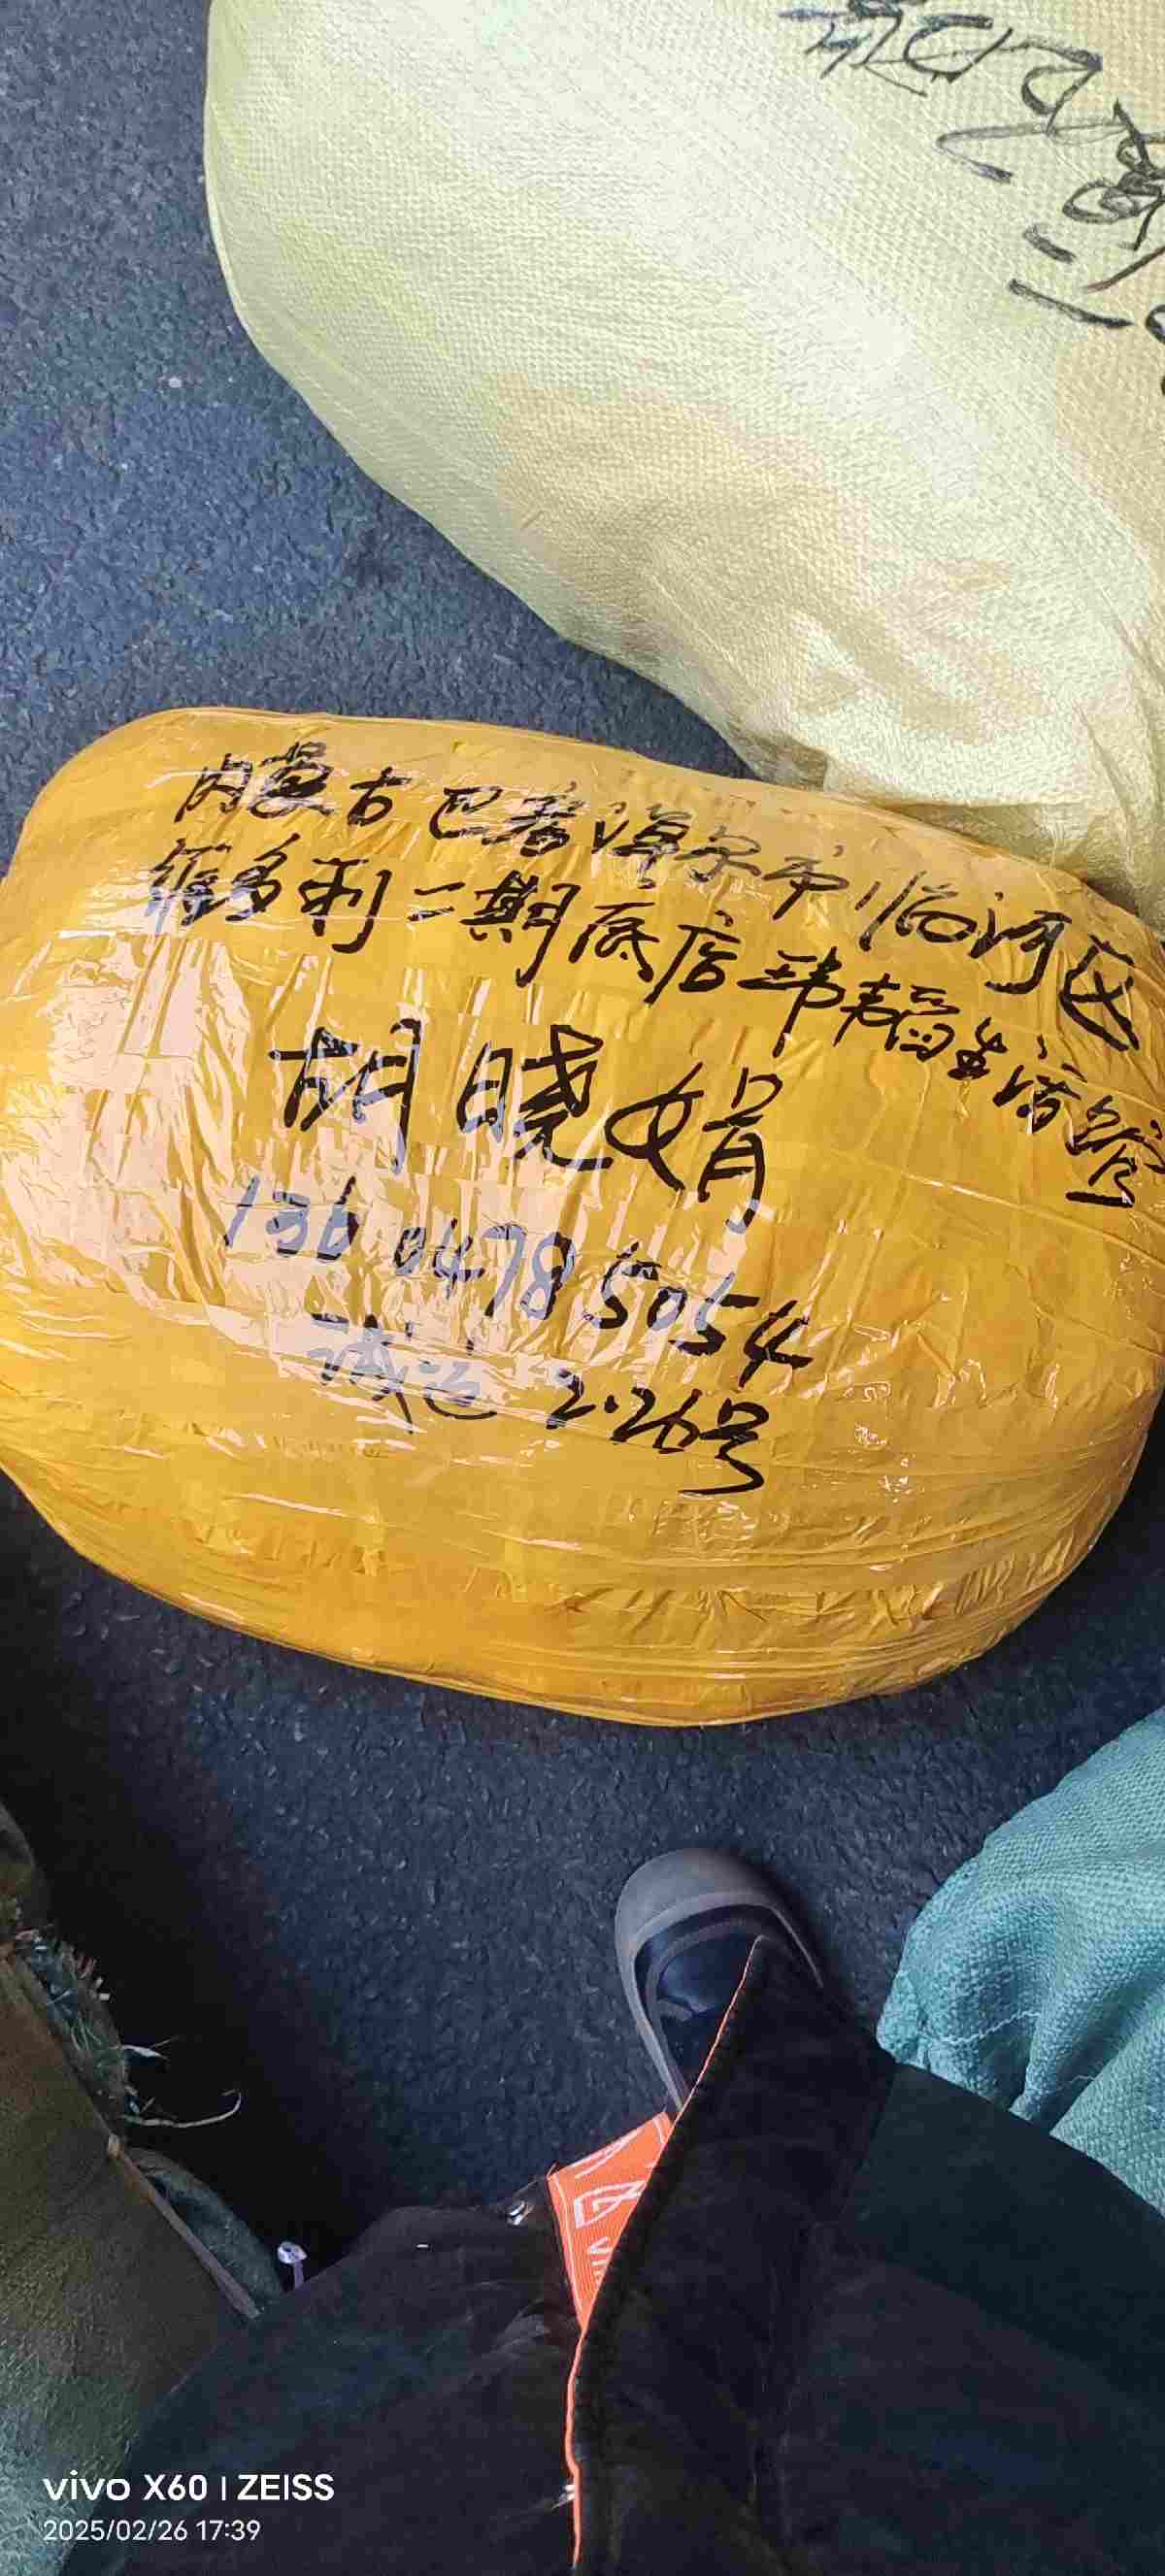 内蒙古巴彦淖尔市临河区
维多利二期底店玮韦蓉生活馆
胡晓娟
136 0478 5054
诚运 2.26号
vivo X60 | ZEISS
2025/02/26 17:39